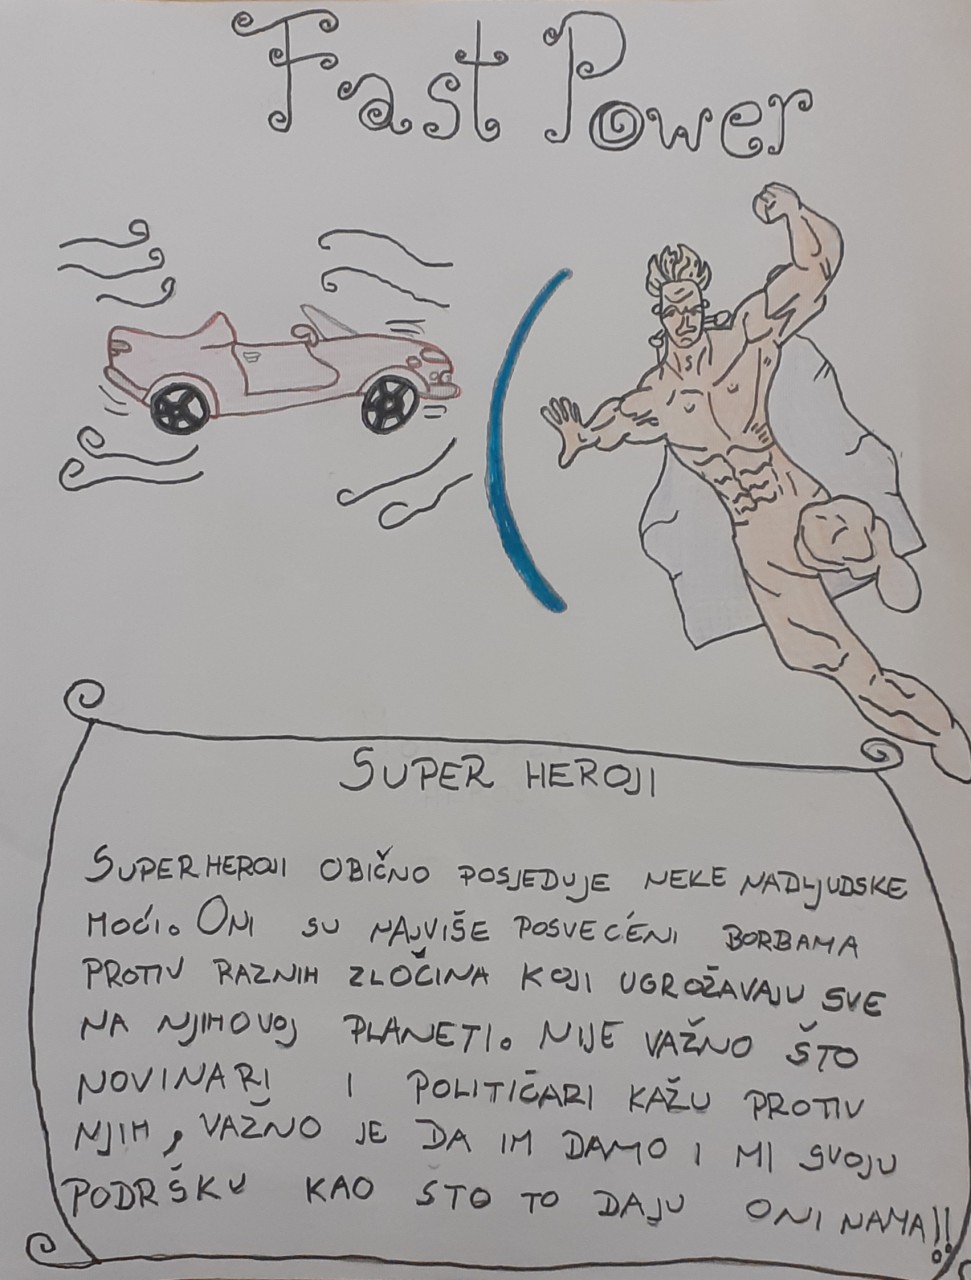 Fast Power
SUPER HEROJI
SUPERHEROJI OBIČNO POSJEDUJE NEKE NADLJUDSKE
MOĆI. ONI SU NAJVIŠE POSVEĆENI BORBAMA
PROTIV RAZNIH ZLOČINA KOJI UGROŽAVAJU SVE
NA NJIHOVOJ PLANETI. NIJE VAŽNO ŠTO
NOVINARI I POLITIČARI KAŽU PROTIV
NJIH, VAŽNO JE DA IM DAMO I MI SVOJU
PODRŠKU KAO ŠTO TO DAJU ONI NAMA!!